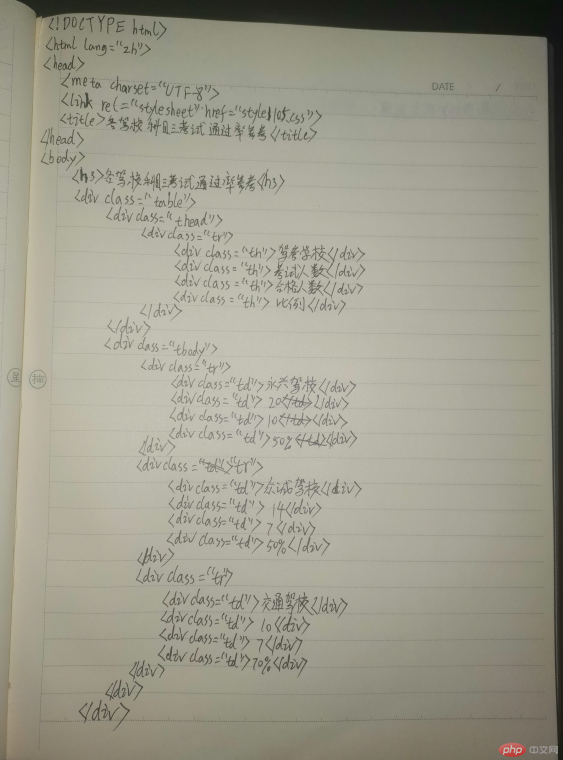 <!DOCTYPE html>
<html lang="zh">
<head>
<meta charset="UTF-8">
<link rel="stylesheet" href="style1105.css">
<title>各驾校科目三考试通过率参考</title>
</head>
<body>
<h3>各驾校科目三考试通过率参考<h3>
<div class="table">
<div class="thead">
<div class="tr">
<div class="th">驾考学校</div>
<div class="th">考试人数</div>
<div class="th">合格人数</div>
<div class="th">比例</div>
</div>
</div>
<div class="tbody">
<div class="tr">
<div class="td">永兴驾校</div>
<div class="td">20</td></div>
<div class="td">10</td></div>
<div class="td">50%</td></div>
</div>
<div class="td">"tr">
<div class="td">众诚驾校</div>
<div class="td">14</div>
<div class="td">7</div>
<div class="td">50%</div>
</div>
<div class="tr">
<div class="td">交通驾校</div>
<div class="td">10</div>
<div class="td">7</div>
<div class="td">70%</div>
</div>
</div>
</div>
DATE /
php 中文网